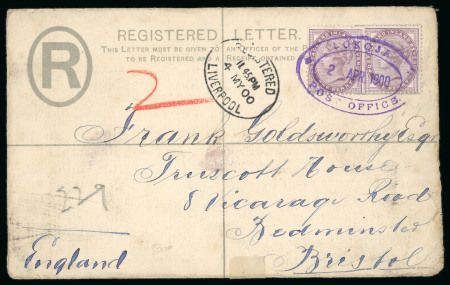 REGISTERED LETTER.
THIS LETTER MUST BE GIVEN TO AN OFFICER OF THE P
TO BE REGISTERED AND A RECEIPT OBTAINED
R
REGISTERED
11.45PM
4 MY 00
LIVERPOOL
LOKOJA
2 APR 1900
POST OFFICE.
2
Frank Goldsworthy Esqr
Truscott House
8 Vicarage Road
Bedminster
Bristol
England
229